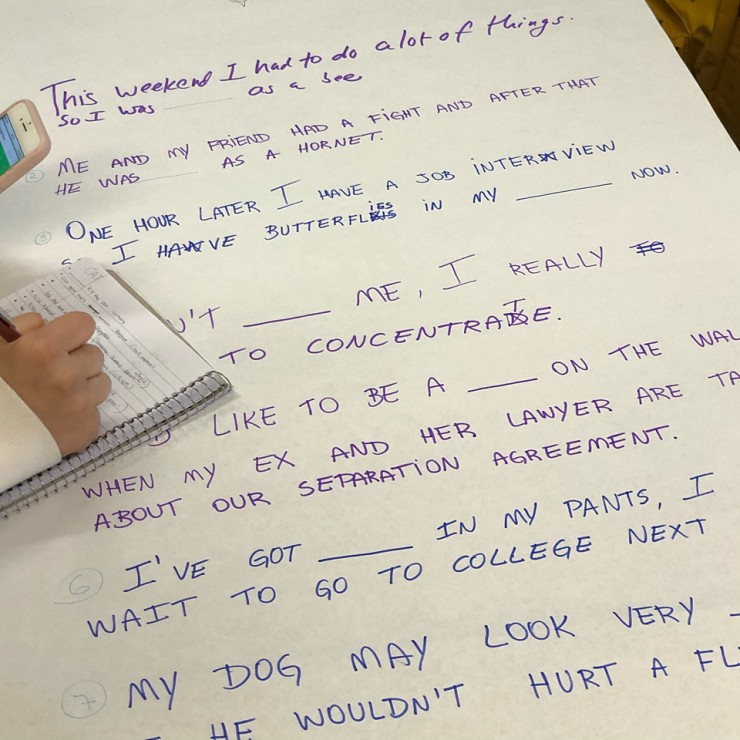 This weekend I had to do a lot of things.
So I was ______ as a bee
② ME AND MY FRIEND HAD A FIGHT AND AFTER THAT
HE WAS ______ AS A HORNET.
③ ONE HOUR LATER I HAVE A JOB INTERVIEW
I HAVE BUTTERFLIES IN MY ______ NOW.
N'T ______ ME, I REALLY
TO CONCENTRATE.
LIKE TO BE A ______ ON THE WAL
WHEN MY EX AND HER LAWYER ARE TA
ABOUT OUR SEPARATION AGREEMENT.
⑥ I'VE GOT ______ IN MY PANTS, I
WAIT TO GO TO COLLEGE NEXT
⑦ MY DOG MAY LOOK VERY
HE WOULDN'T HURT A FL